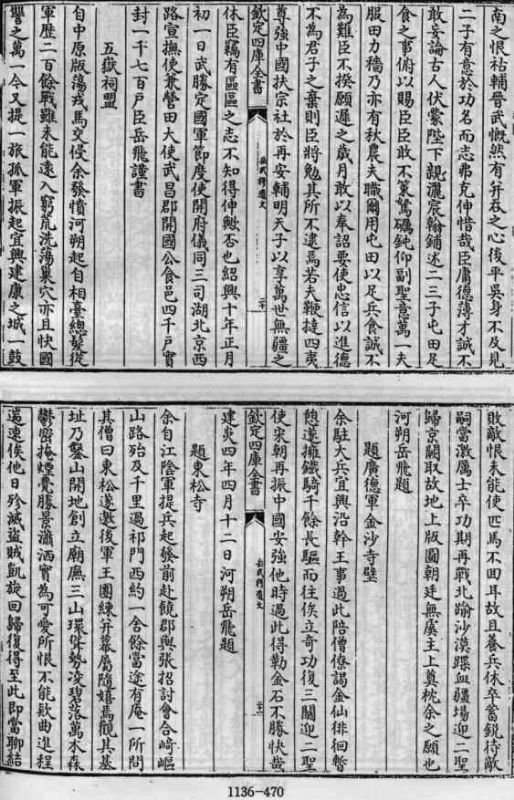 南之恨祜輔晉武慨然有并吞之心後平吳身不及見
二子有意於功名而志弗克伸惜哉臣庸德薄才誠不
敢妄論古人伏蒙陛下親灑宸翰鋪述二三子屯田足
食之事俯以賜臣臣敢不策駑礪鈍仰副聖意萬一夫
服田力穡乃亦有秋農夫職爾用屯田以足兵食誠不
為難臣不揆願遲之歲月敢以奉詔要使忠信以進德
不為君子之棄則臣將勉其所不逮焉若夫鞭撻四夷
尊強中國扶宗社於再安輔明天子以享萬世無疆之
欽定四庫全書
岳武穆遺文
二十
休臣竊有區區之志不知得伸歟否也紹興十年正月
初一日武勝定國軍節度使開府儀同三司湖北京西
路宣撫使兼營田大使武昌郡開國公食邑四千戶實
封一千七百戶臣岳飛謹書
五嶽祠盟
自中原版蕩戎馬交侵余發憤河朔起自相臺總髮從
軍歷二百餘戰雖未能遠入窮荒洗蕩巢穴亦且快國
讐之萬一今又提一旅孤軍振起宜興建康之城一鼓
敗敵恨未能使匹馬不回耳故且養兵休卒蓄銳待敵
嗣當激厲士卒功期再戰北踰沙漠蹀血疆場迎二聖
歸京闕取故地上版圖朝廷無虞主上奠枕余之願也
河朔岳飛題
題廣德軍金沙寺壁
余駐大兵宜興沿幹王事過此陪僧僚謁金仙徘徊暫
憩遂擁鐵騎千餘長驅而往俟立奇功復三關迎二聖
使宋朝再振中國安強他時過此得勒金石不勝快哉
欽定四庫全書
岳武穆遺文
建炎四年四月十二日河朔岳飛題
題東松寺
余自江陰軍提兵起發前赴饒郡與張招討會合崎嶇
山路殆及千里過祁門西約一舍餘當途有庵一所問
其僧曰東松遂邀後軍王團練并幕屬隨嬉焉觀其基
址乃鑿山開地創立廟廡三山環聳勢凌碧落萬木森
鬱密掩煙甍勝景瀟洒實為可愛所恨不能款曲進程
遄速俟他日殄滅盜賊凱旋回歸復得至此即當聊結
1136-470